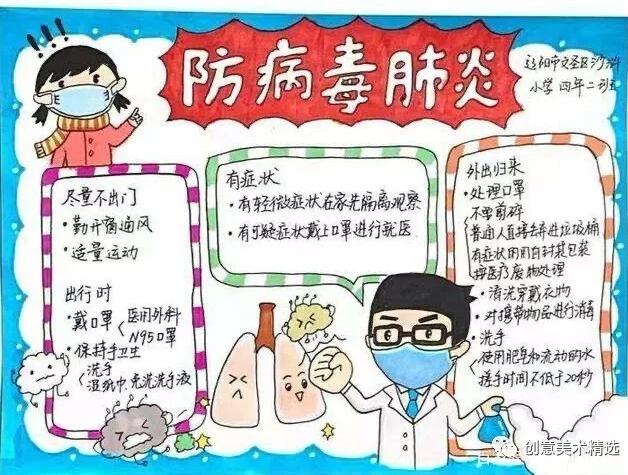 防病毒肺炎
辽阳市文圣区沙浒
小学四年二班
尽量不出门
·勤开窗通风
·适量运动
出行时
·戴口罩 医用外科
N95口罩
·保持手卫生
洗手
湿纸巾 免洗洗手液
有症状
·有轻微症状在家先隔离观察
·有可疑症状戴上口罩进行就医
外出归来
·处理口罩
不要剪碎
普通人直接丢弃进垃圾桶
有症状用用自封袋包装
按医疗废物处理
·清洗穿戴衣物
·对携带物品进行消毒
·洗手
使用肥皂和流动的水
搓手时间不低于20秒
创意美术精选